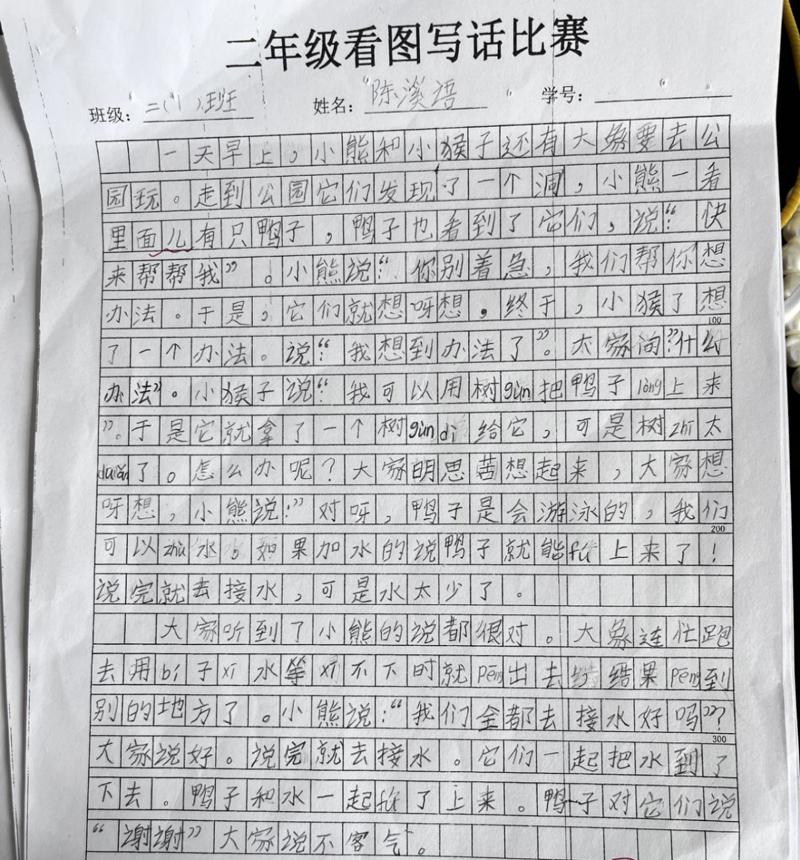 二年级看图写话比赛
班级：二（1）班 姓名：陈溪语 学号：
一天早上，小熊和小猴子还有大象要去公
园玩。走到公园它们发现了一个洞，小熊一看
里面儿有只鸭子，鸭子也看到了它们，说：“快
来帮帮我”。小熊说：“你别着急，我们帮你想
办法。于是，它们就想呀想，终于，小猴了想
100
了一个办法。说：“我想到办法了”。大家问？什么
办法”。小猴子说：“我可以用树gùn把鸭子lāng上来
”。于是它就拿了一个树gùn dì给它，可是树zhī太
duǎn了。怎么办呢？大家明思苦想起来，大家想
呀想，小熊说：”对呀，鸭子是会游泳的，我们
200
可以zhù水，如果加水的说鸭子就能fú上来了！
说完就去接水，可是水太少了。
大家听到了小熊的说都很对。大象连忙跑
去用bí子xī水等xī不下时就pēn出去结果pēn到
别的地方了。小熊说：“我们全都去接水好吗”？
300
大家说好。说完就去接水。它们一起把水到了
下去。鸭子和水一起fú了上来。鸭子对它们说
“谢谢”大家说不客气。